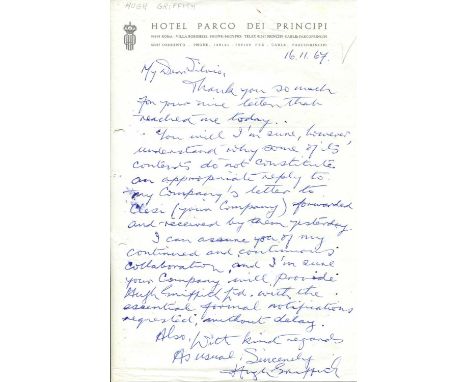 HUGH GRIFFITH
HOTEL PARCO DEI PRINCIPI
16.11.67.
My Dear Silvio,
Thank you so much
for your nice letter that
reached me today..
You will I'm sure, however,
understand why some of its
contents do not constitute
an appropriate reply to
my Company's letter to
Clesi (your Company) forwarded
and received by them yesterday.
I can assure you of my
continued and continuous
collaboration, and I'm sure
your Company will provide
Hugh Griffith Ltd. with the
essential formal notifications
requested, without delay.
Also, With kind regards
As usual, Sincerely
Hugh Griffith